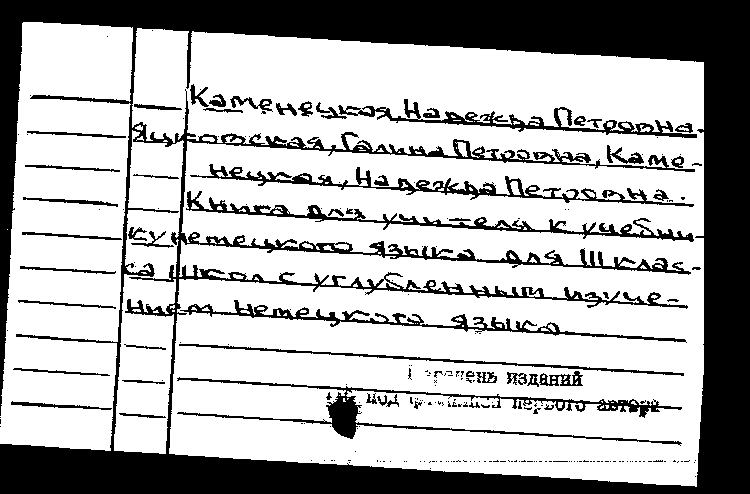 Каменецкая, Надежда Петровна.
Яцковская, Галина Петровна, Каме-
нецкая, Надежда Петровна.
Книга для учителя к учебни-
ку немецкого языка для III клас-
са школ с углубленным изуче-
нием немецкого языка
Перечень изданий
под фамилией первого автора